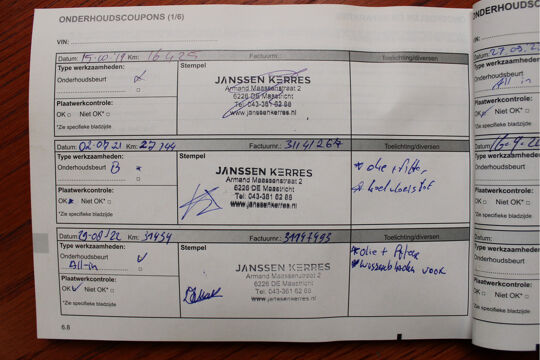 ONDERHOUDSCOUPONS (1/6)
VIN:
Datum: 15-10'19 Km: 16425 Factuurnr.: Toelichting/diversen
Type werkzaamheden: Stempel
Onderhoudsbeurt
JANSSEN KERRES
Armand Maassenstraat 2
6228 DE Maastricht
Tel: 043-361 62 88
www.janssenkerres.nl
Plaatwerkcontrole:
OK □ Niet OK* □
*Zie specifieke bladzijde
Datum: 02-07 21 Km: 27744 Factuurnr.: 31141264 Toelichting/diversen
Type werkzaamheden: Stempel
Onderhoudsbeurt B
JANSSEN KERRES
Armand Maassenstraat 2
6228 DE Maastricht
Tel: 043-361 62 88
www.janssenkerres.nl
* olie + filter
* koelvloeistof
Plaatwerkcontrole:
OK Niet OK* □
*Zie specifieke bladzijde
Datum: 29-08/22 31454 Factuurnr.: 31147495 Toelichting/diversen
Type werkzaamheden: Stempel
Onderhoudsbeurt
All-in
JANSSEN KERRES
Armand Maassenstraat 2
6228 DE Maastricht
Tel: 043-361 62 88
www.janssenkerres.nl
* olie + filter
* wisserbladen voor
Plaatwerkcontrole:
OK Niet OK* □
*Zie specifieke bladzijde
6.8
ONDERHOUDSC
VIN:
Datum:
Type werkzaam
Onderhoudsbeurt
All in
Plaatwerkcontr
OK Niet OK*
*Zie specifieke bla
Datum:
Type werkzaam
Onderhoudsbeu
Plaatwerkcont
OK □ Niet OK
*Zie specifieke b
Datum:
Type werkzaa
Onderhoudsbe
Plaatwerkcon
OK □ Niet O
*Zie specifieke